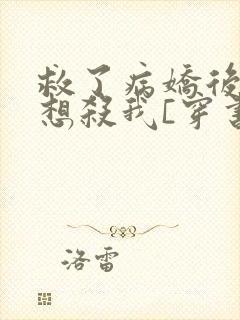 救了病嬌後
想殺我[穿書
洛雷